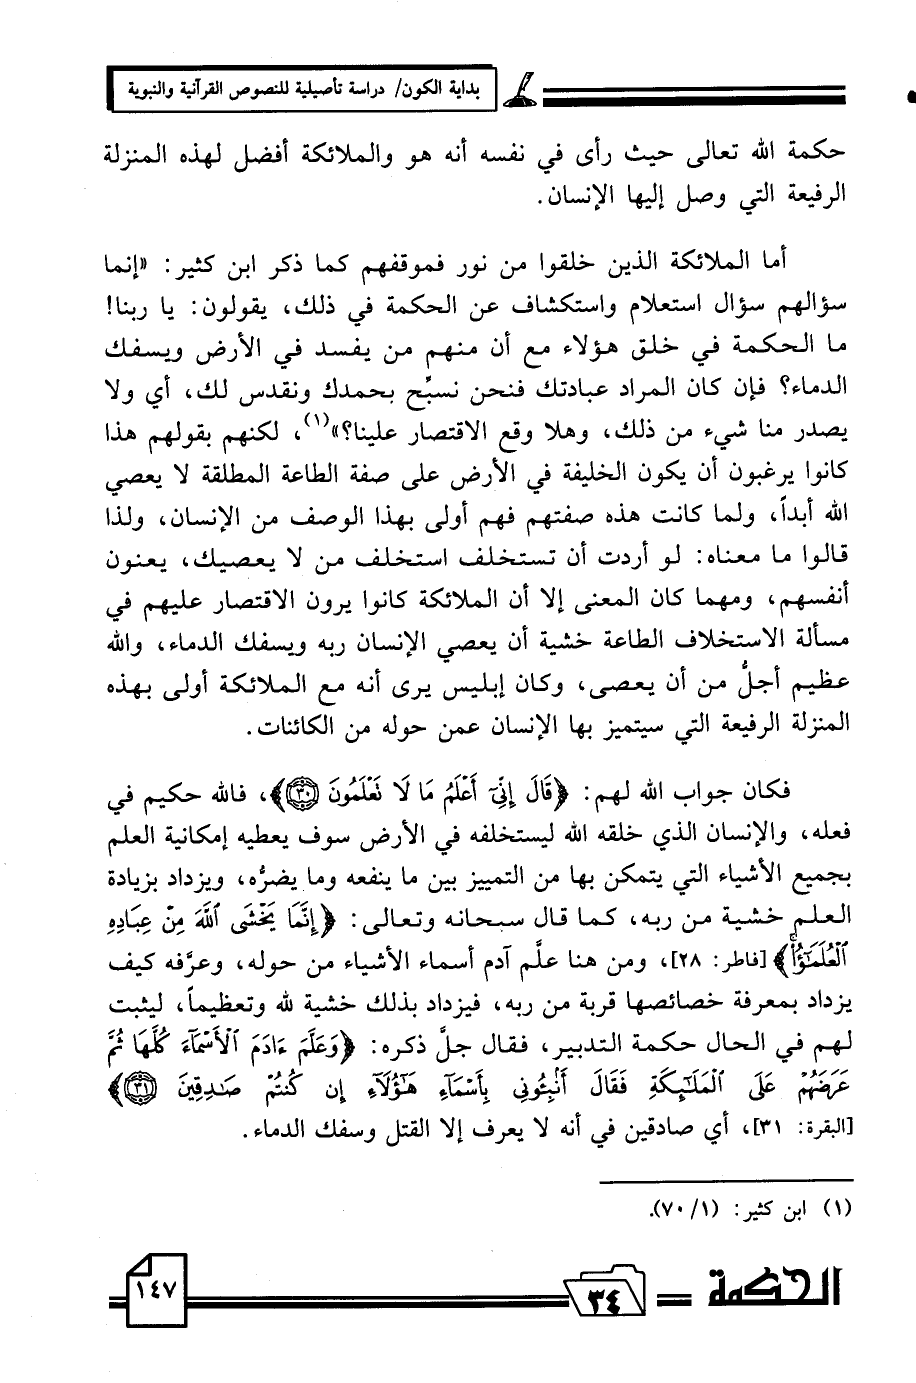 بداية الكون/ دراسة تأصيلية للنصوص القرآنية والنبوية
حكمة الله تعالى حيث رأى في نفسه أنه هو والملائكة أفضل لهذه المنزلة
الرفيعة التي وصل إليها الإنسان.
أما الملائكة الذين خلقوا من نور فموقفهم كما ذكر ابن كثير: «إنما
سؤالهم سؤال استعلام واستكشاف عن الحكمة في ذلك، يقولون: يا ربنا!
ما الحكمة في خلق هؤلاء مع أن منهم من يفسد في الأرض ويسفك
الدماء؟ فإن كان المراد عبادتك فنحن نسبِّح بحمدك ونقدس لك، أي ولا
يصدر منا شيء من ذلك، وهلا وقع الاقتصار علينا؟»(١)، لكنهم بقولهم هذا
كانوا يرغبون أن يكون الخليفة في الأرض على صفة الطاعة المطلقة لا يعصي
الله أبداً، ولما كانت هذه صفتهم فهم أولى بهذا الوصف من الإنسان، ولذا
قالوا ما معناه: لو أردت أن تستخلف استخلف من لا يعصيك، يعنون
أنفسهم، ومهما كان المعنى إلا أن الملائكة كانوا يرون الاقتصار عليهم في
مسألة الاستخلاف الطاعة خشية أن يعصي الإنسان ربه ويسفك الدماء، والله
عظيم أجلُّ من أن يعصى، وكان إبليس يرى أنه مع الملائكة أولى بهذه
المنزلة الرفيعة التي سيتميز بها الإنسان عمن حوله من الكائنات.
فكان جواب الله لهم: ﴿قَالَ إِنِّيٓ أَعۡلَمُ مَا لَا تَعۡلَمُونَ ٣٠﴾، فالله حكيم في
فعله، والإنسان الذي خلقه الله ليستخلفه في الأرض سوف يعطيه إمكانية العلم
بجميع الأشياء التي يتمكن بها من التمييز بين ما ينفعه وما يضرُّه، ويزداد بزيادة
العلم خشية من ربه، كما قال سبحانه وتعالى: ﴿إِنَّمَا يَخۡشَى ٱللَّهَ مِنۡ عِبَادِهِ
ٱلۡعُلَمَٰٓؤُاْۗ﴾ [فاطر: ٢٨]، ومن هنا علَّم آدم أسماء الأشياء من حوله، وعرَّفه كيف
يزداد بمعرفة خصائصها قربة من ربه، فيزداد بذلك خشية لله وتعظيماً، ليثبت
لهم في الحال حكمة التدبير، فقال جلَّ ذكره: ﴿وَعَلَّمَ ءَادَمَ ٱلۡأَسۡمَآءَ كُلَّهَا ثُمَّ
عَرَضَهُمۡ عَلَى ٱلۡمَلَٰٓئِكَةِ فَقَالَ أَنۢبِـُٔونِي بِأَسۡمَآءِ هَٰٓؤُلَآءِ إِن كُنتُمۡ صَٰدِقِينَ ٣١﴾
[البقرة: ٣١]، أي صادقين في أنه لا يعرف إلا القتل وسفك الدماء.
(١) ابن كثير: (٧٠/١).
الحكمة
٣٤
١٤٧